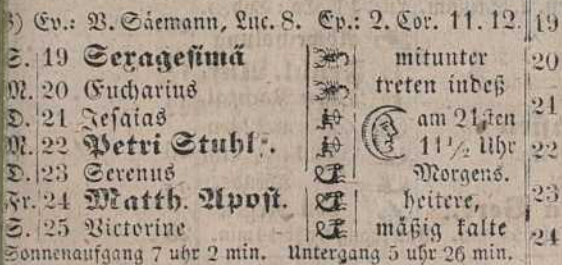 8) Ev.: V. Säemann, Luc. 8. Ep.: 2. Cor. 11. 12. 19
S. 19 Sexagesimä mitunter 20
M. 20 Eucharius treten indeß
D. 21 Jesaias am 21sten 21
M. 22 Petri Stuhlf. 11½ Uhr 22
D. 23 Serenus Morgens.
Fr. 24 Matth. Apost. heitere, 23
S. 25 Victorine mäßig kalte 24
Sonnenaufgang 7 uhr 2 min. Untergang 5 uhr 26 min.